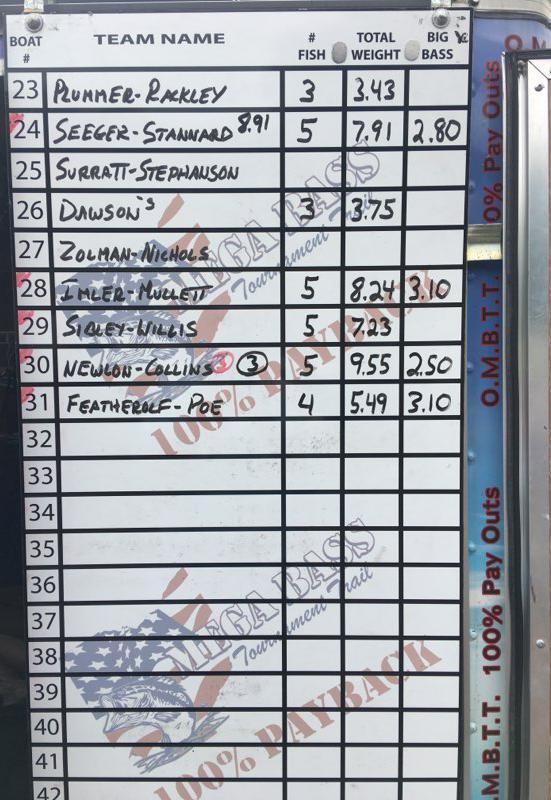 BOAT # TEAM NAME # FISH TOTAL WEIGHT BIG BASS
23 PLUMMER-RACKLEY 3 3.43
24 SEEGER-STANNARD 8.91 5 7.91 2.80
25 SURRATT-STEPHANSON
26 DAWSON'S 3 3.75
27 ZOLMAN-NICHOLS
28 IMLER-MULLETT 5 8.24 3.10
29 SIGLEY-WILLIS 5 7.23
30 NEWLON-COLLINS 3 3 5 9.55 2.50
31 FEATHEROLF-POE 4 5.49 3.10
32
33
34
35
36
37
38
39
40
41
42
MEGA BASS
Tournament Trail
100% PAYBACK
MEGA BASS
Tournament Trail
100% PAYBACK
O.M.B.T.T. 0% Pay Outs
.M.B.T.T. 100% Pay Outs